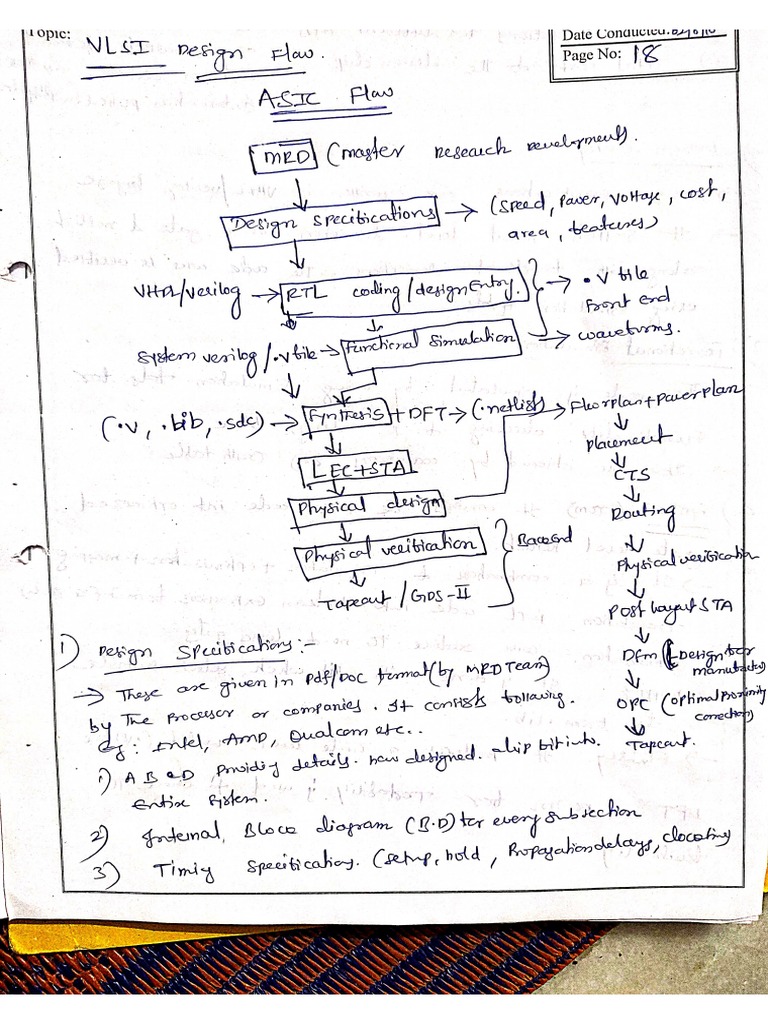 Topic: VLSI Design Flow.
Date Conducted:
Page No: 18
ASIC Flow
MRD (Master Research Developments).
Design Specifications → (Speed, Power, Voltage, cost,
area, features)
VHDL/Verilog → RTL coding/design Entry. → .V file
Front end
System verilog/.v file → Functional Simulation → waveforms.
(.v, .bib, .sdc) → Synthesis + DFT → (.netlist) → Floorplan + Powerplan
Placement
LEC+STA
CTS
Physical design
Routing
Physical verification
Backend
Physical verification
Tapeout / GDS-II
Post Layout STA
DFM (Design for
manufactory)
OPC (optimal Proximity
correction)
Tapeout.
1) Design Specifications:-
→ These are given in Pdf/Doc format (by MRD Team)
by The Processor or companies. It consists following.
Eg: Intel, AMD, Qualcom etc..
1) A B&D Providing details. new designed. chip bit into.
Entire System.
2) Internal, Block diagram (B.D) for every subsection
3) Timing Specifications. (setup, hold, Propagation delays, clocking